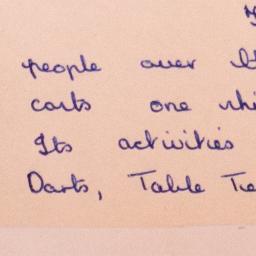 people over
costs one
Its activities
Darts, Table